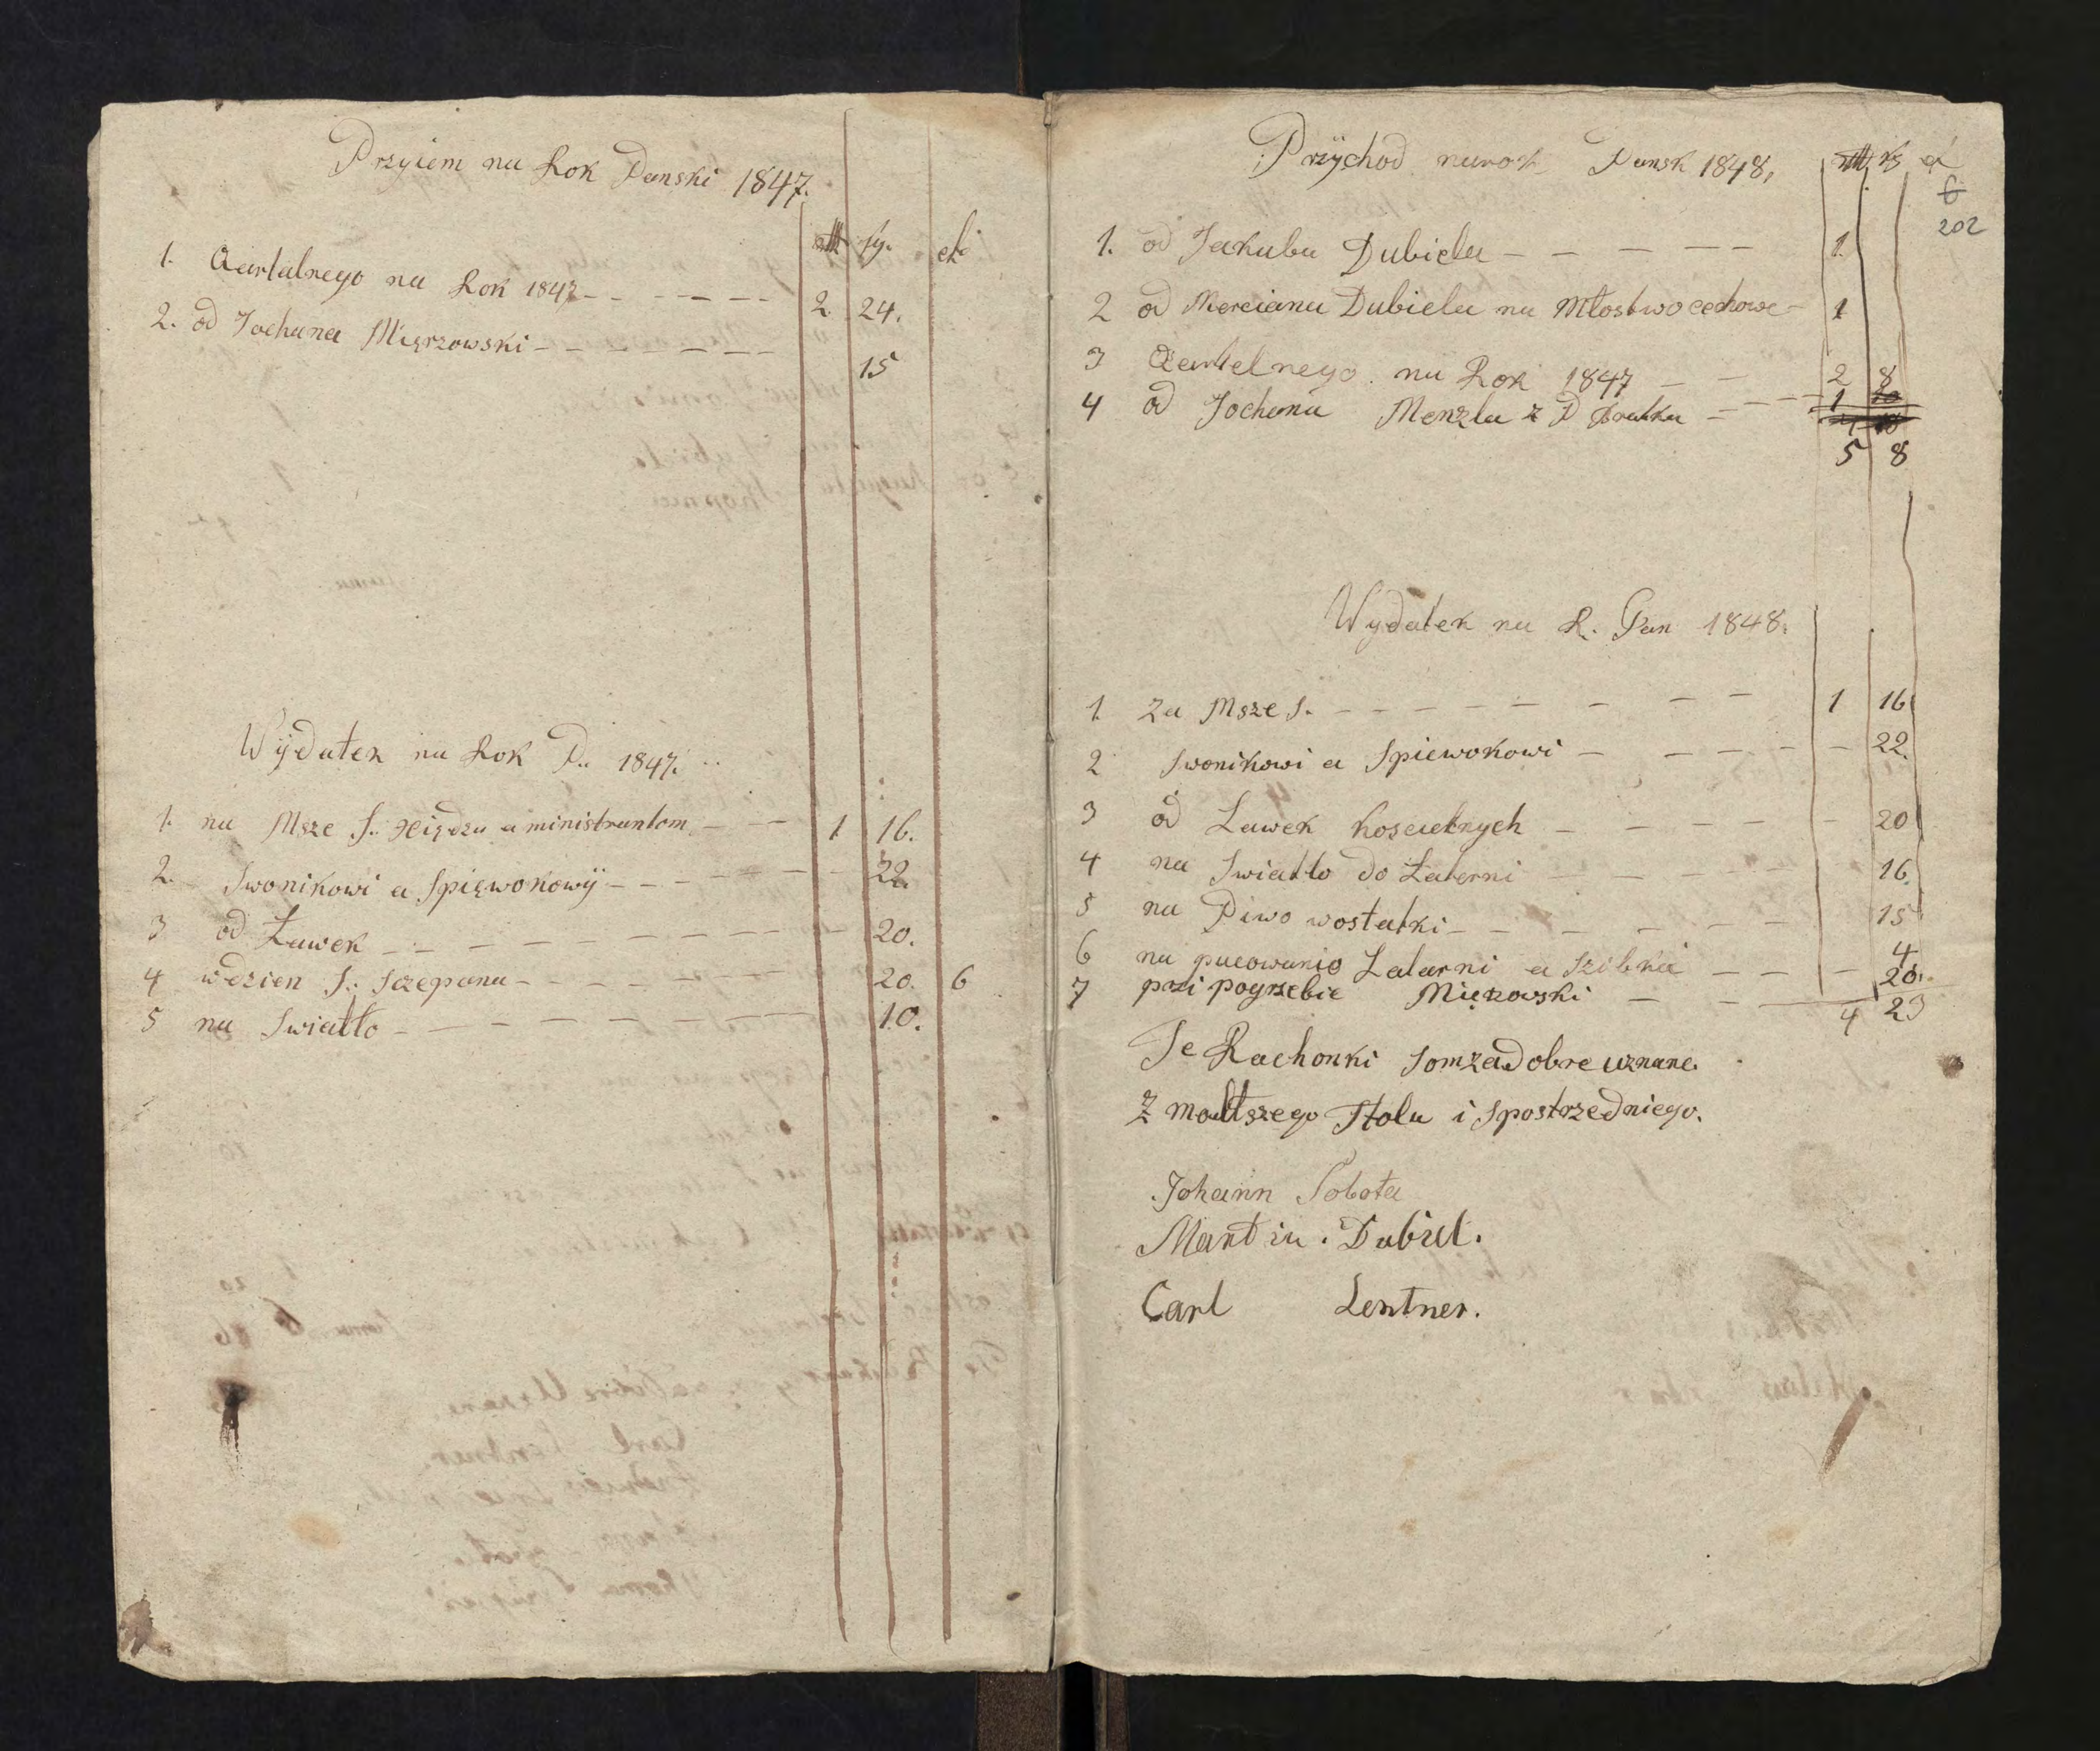 Przyiem na Rok Panski 1847.
sg.
1. Qartalnego na Rok 1847 - - - - - - 2 24.
2. od Jochana Mięrzowski - - - - - - - 15
Wÿdatek na Rok P. 1847.
1. na Msze S. Xiędzu a ministrantom - - - 1 16.
2. Swonikowi a Spięwokowÿ - - - - - - 22.
3 od Ławek - - - - - - - - - 20.
4 wdzien S. Sczepana - - - - - - - 20. 6
5 na Swiatło - - - - - - - - 10.
Przÿchod narok Pansk 1848.
6
202
1. od Jakuba Dubiela - - - - - 1
2 od Merciana Dubiela na Młostwo cechowe - 1
3 Qartelnego na Rok 1847 - - 2 8
4 od Jochana Menzla z P - - - - 1
5 8
Wydatek na R. Pan 1848.
1. Za Msze S. - - - - - - - - - 1 16
2 Swonikowi a Spiewokowi - - - - - - 22
3 od Lawek koscielnych - - - - - 20
4 na Swiatło do Laterni - - - - - 16.
5 na Piwo wostatki - - - - - - 15
6 na pucowanio Latarni a Szibka - - - 4
7 przi pogrzebie Mięrzowski - - 20.
4 23
Te Rachonki Som za Dobre uznane.
Z małtszego Stołu i Spostrzedniego.
Johann Sobota
Martin . Dubiel.
Carl Lentner.